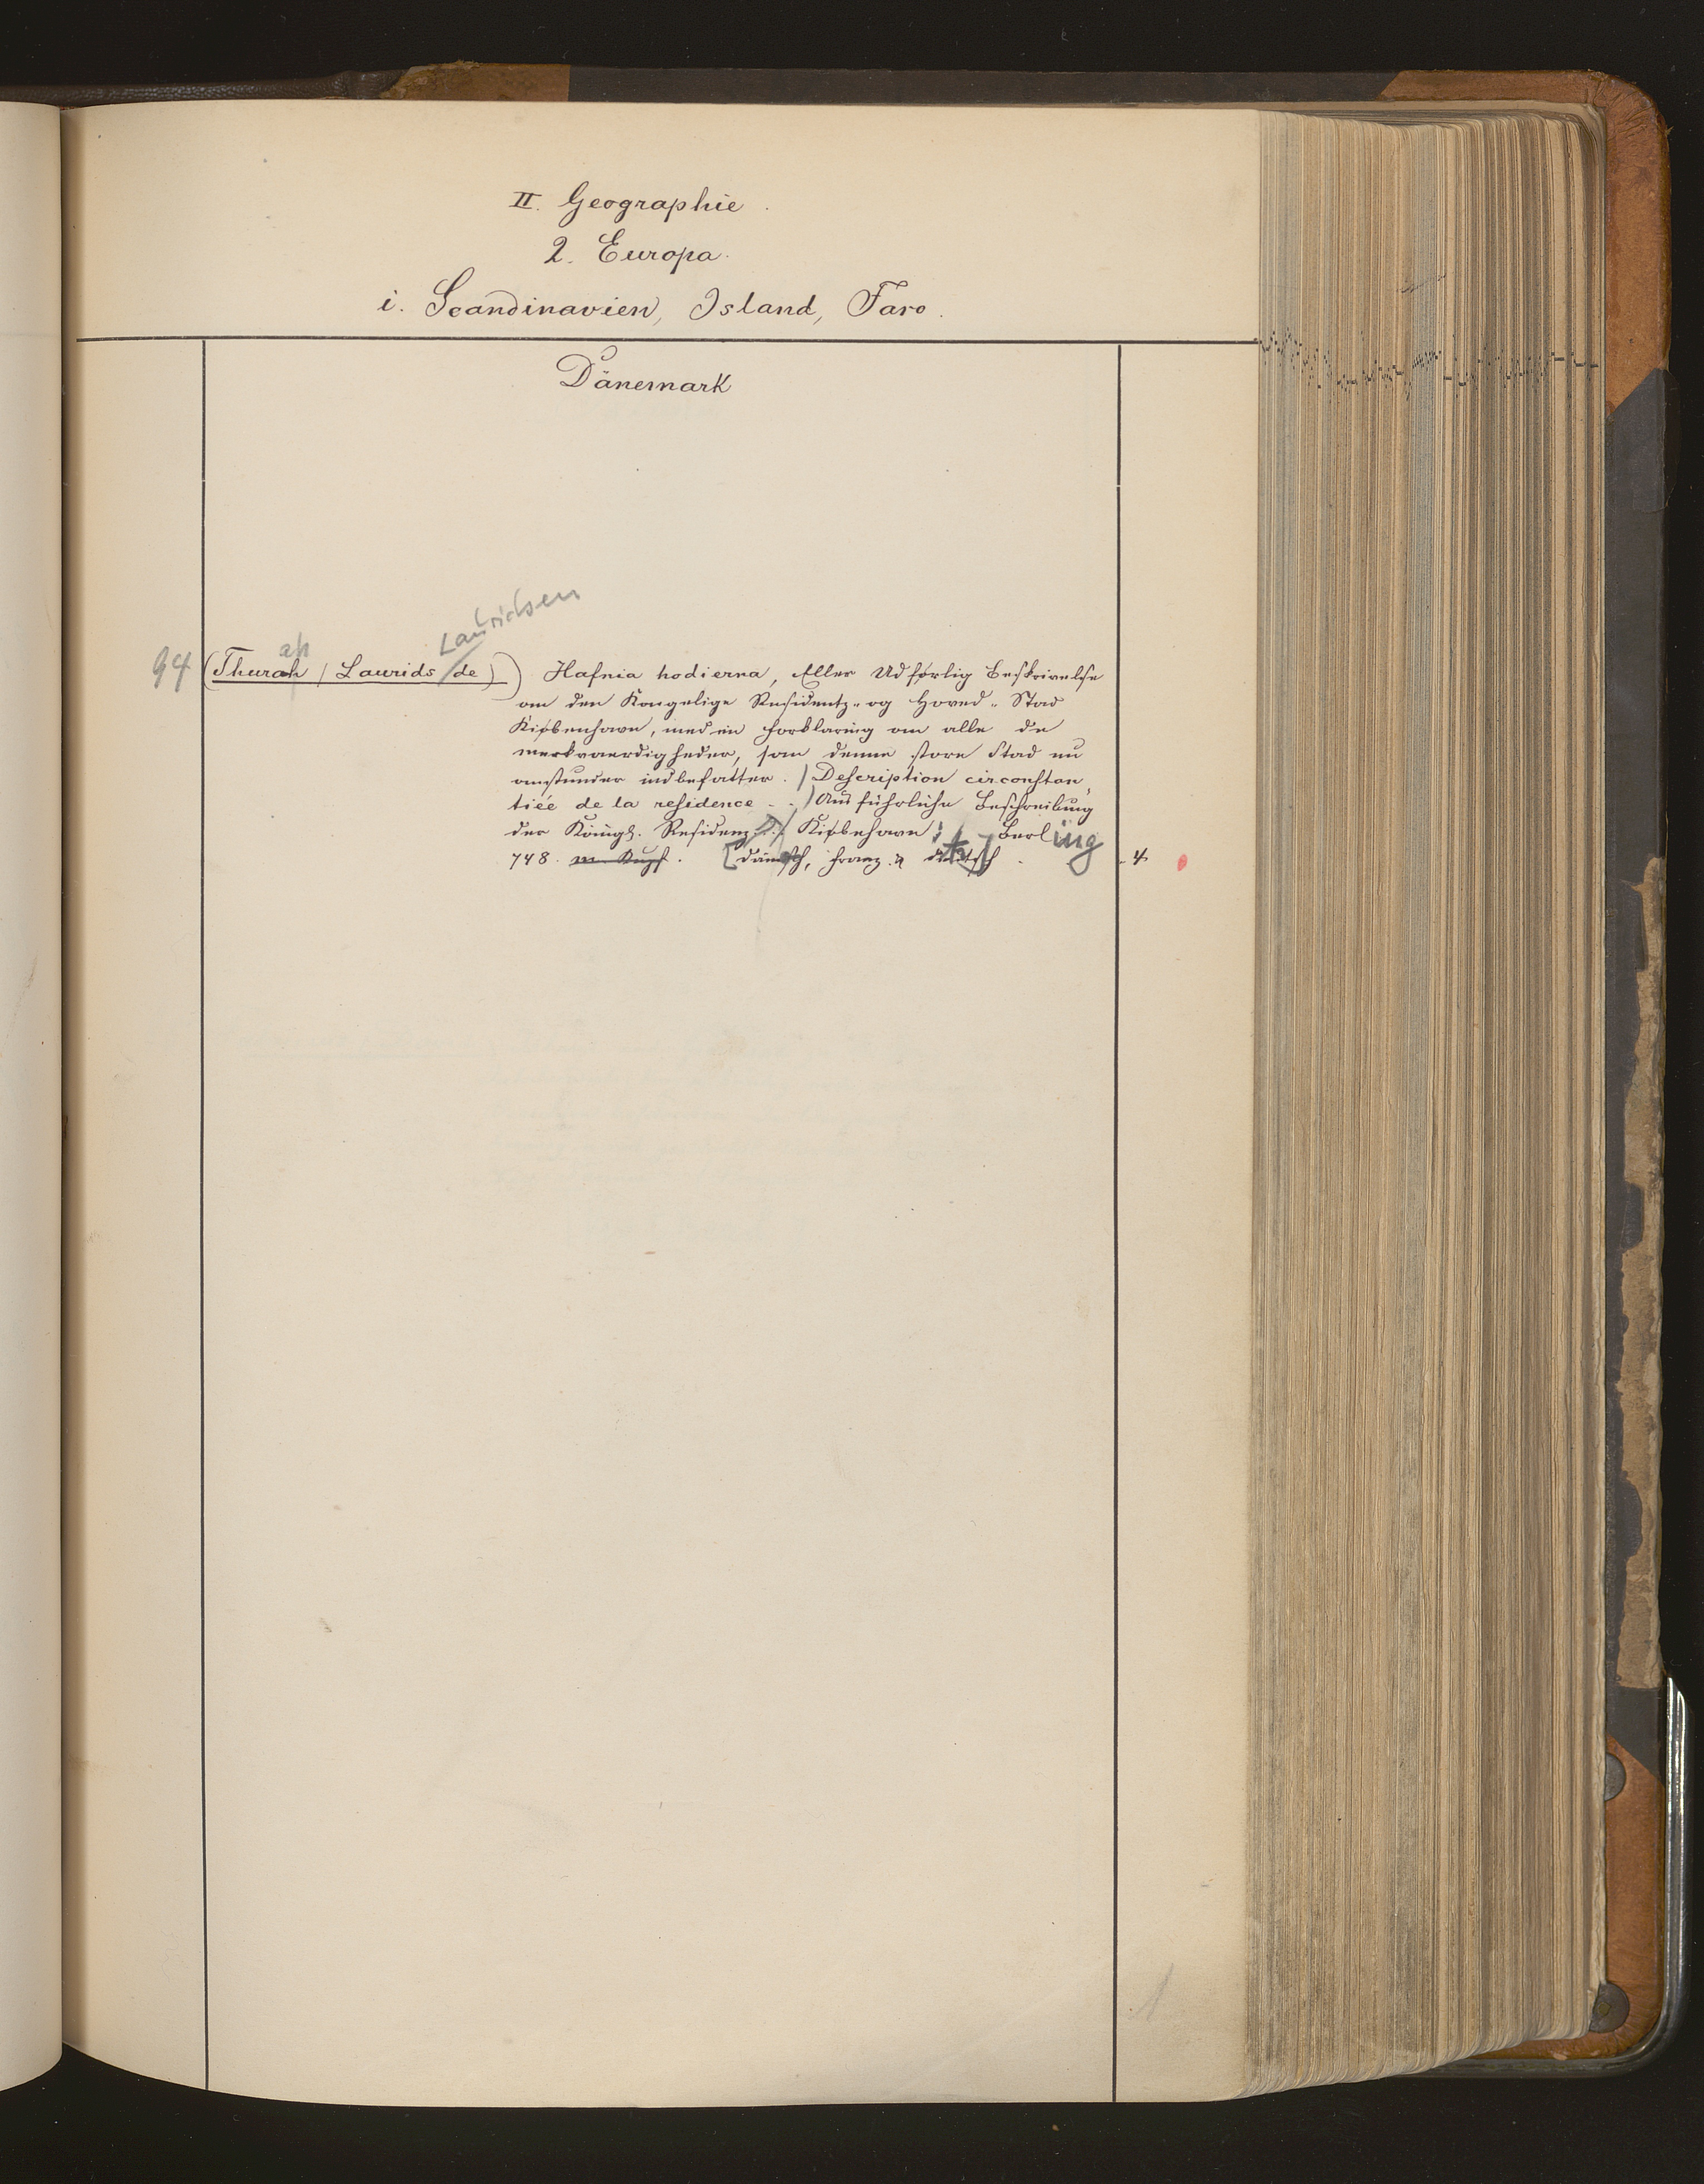 II. Geographie.
2. Europa.
i. Scandinavien, Island, Faro.
Dänemark
Lauridsen
ah
94 (Thurah / Laurids de)) Hafnia hodierna, Eller Udførlig Beskrivelse
om den Kongelige Residentz- og Hoved-Stad
Kiøbenhavn, med en Forklaring om alle de
merkvaerdigheder, som denne store Stad nu
omstunder indbefatter. / Description circonstan-
tiée de la residence .. / Ausführliche Beschreibung
der Königl. Residenz .. / Kiøbehavn: Berling
748. m. Kupf. [dänisch, franz. & deutsch]. 4
1